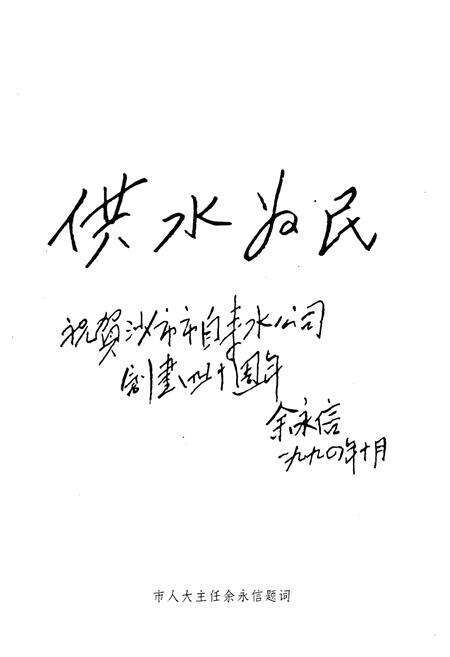 供水为民
祝賀沙市市自来水公司
創建四十周年
余永信
一九九〇年十月
市人大主任余永信题词